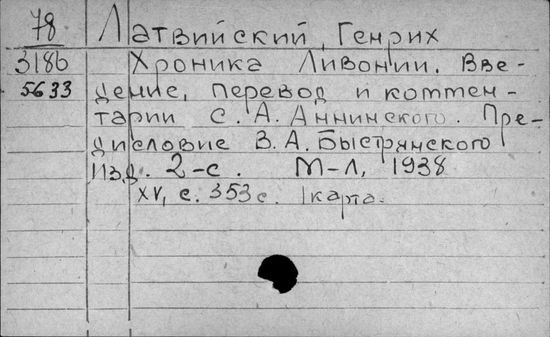 78 Латвийский, Генрих
3186 Хроника Ливонии. Вве-
5633 дение, перевод и коммен-
тарии С. А. Аннинского. Пре-
дисловие В. А. Быстрянского
Изд. 2-е. М-Л, 1938
XV, с. 353 с. 1 карта.